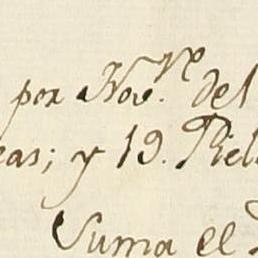 por Nov.re del
eas; y 19. Piel
Suma el